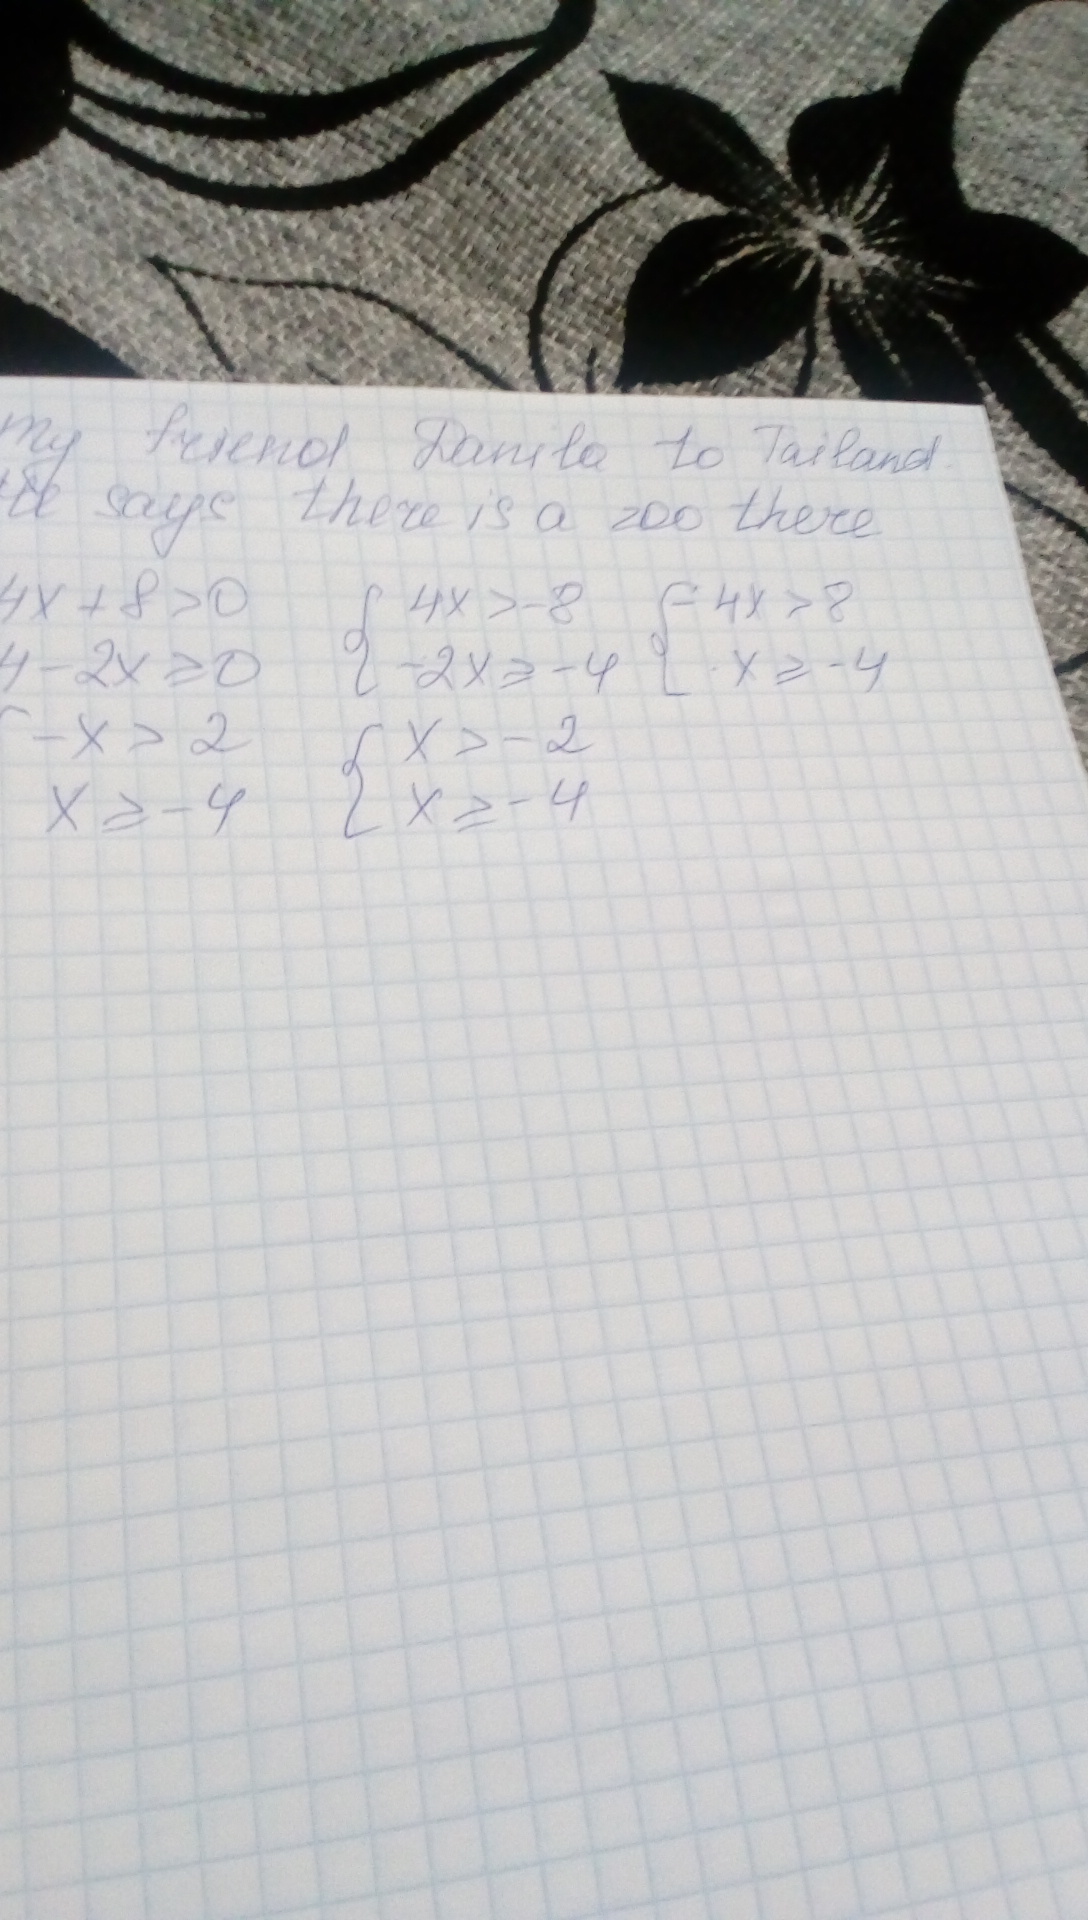 my friend Danila to Tailand.
He says there is a zoo there
4x+8>0 { 4x>-8 { -4x>8
4-2x≥0 -2x≥-4 x≥-4
{ -x>2 { x>-2
x≥-4 x≥-4